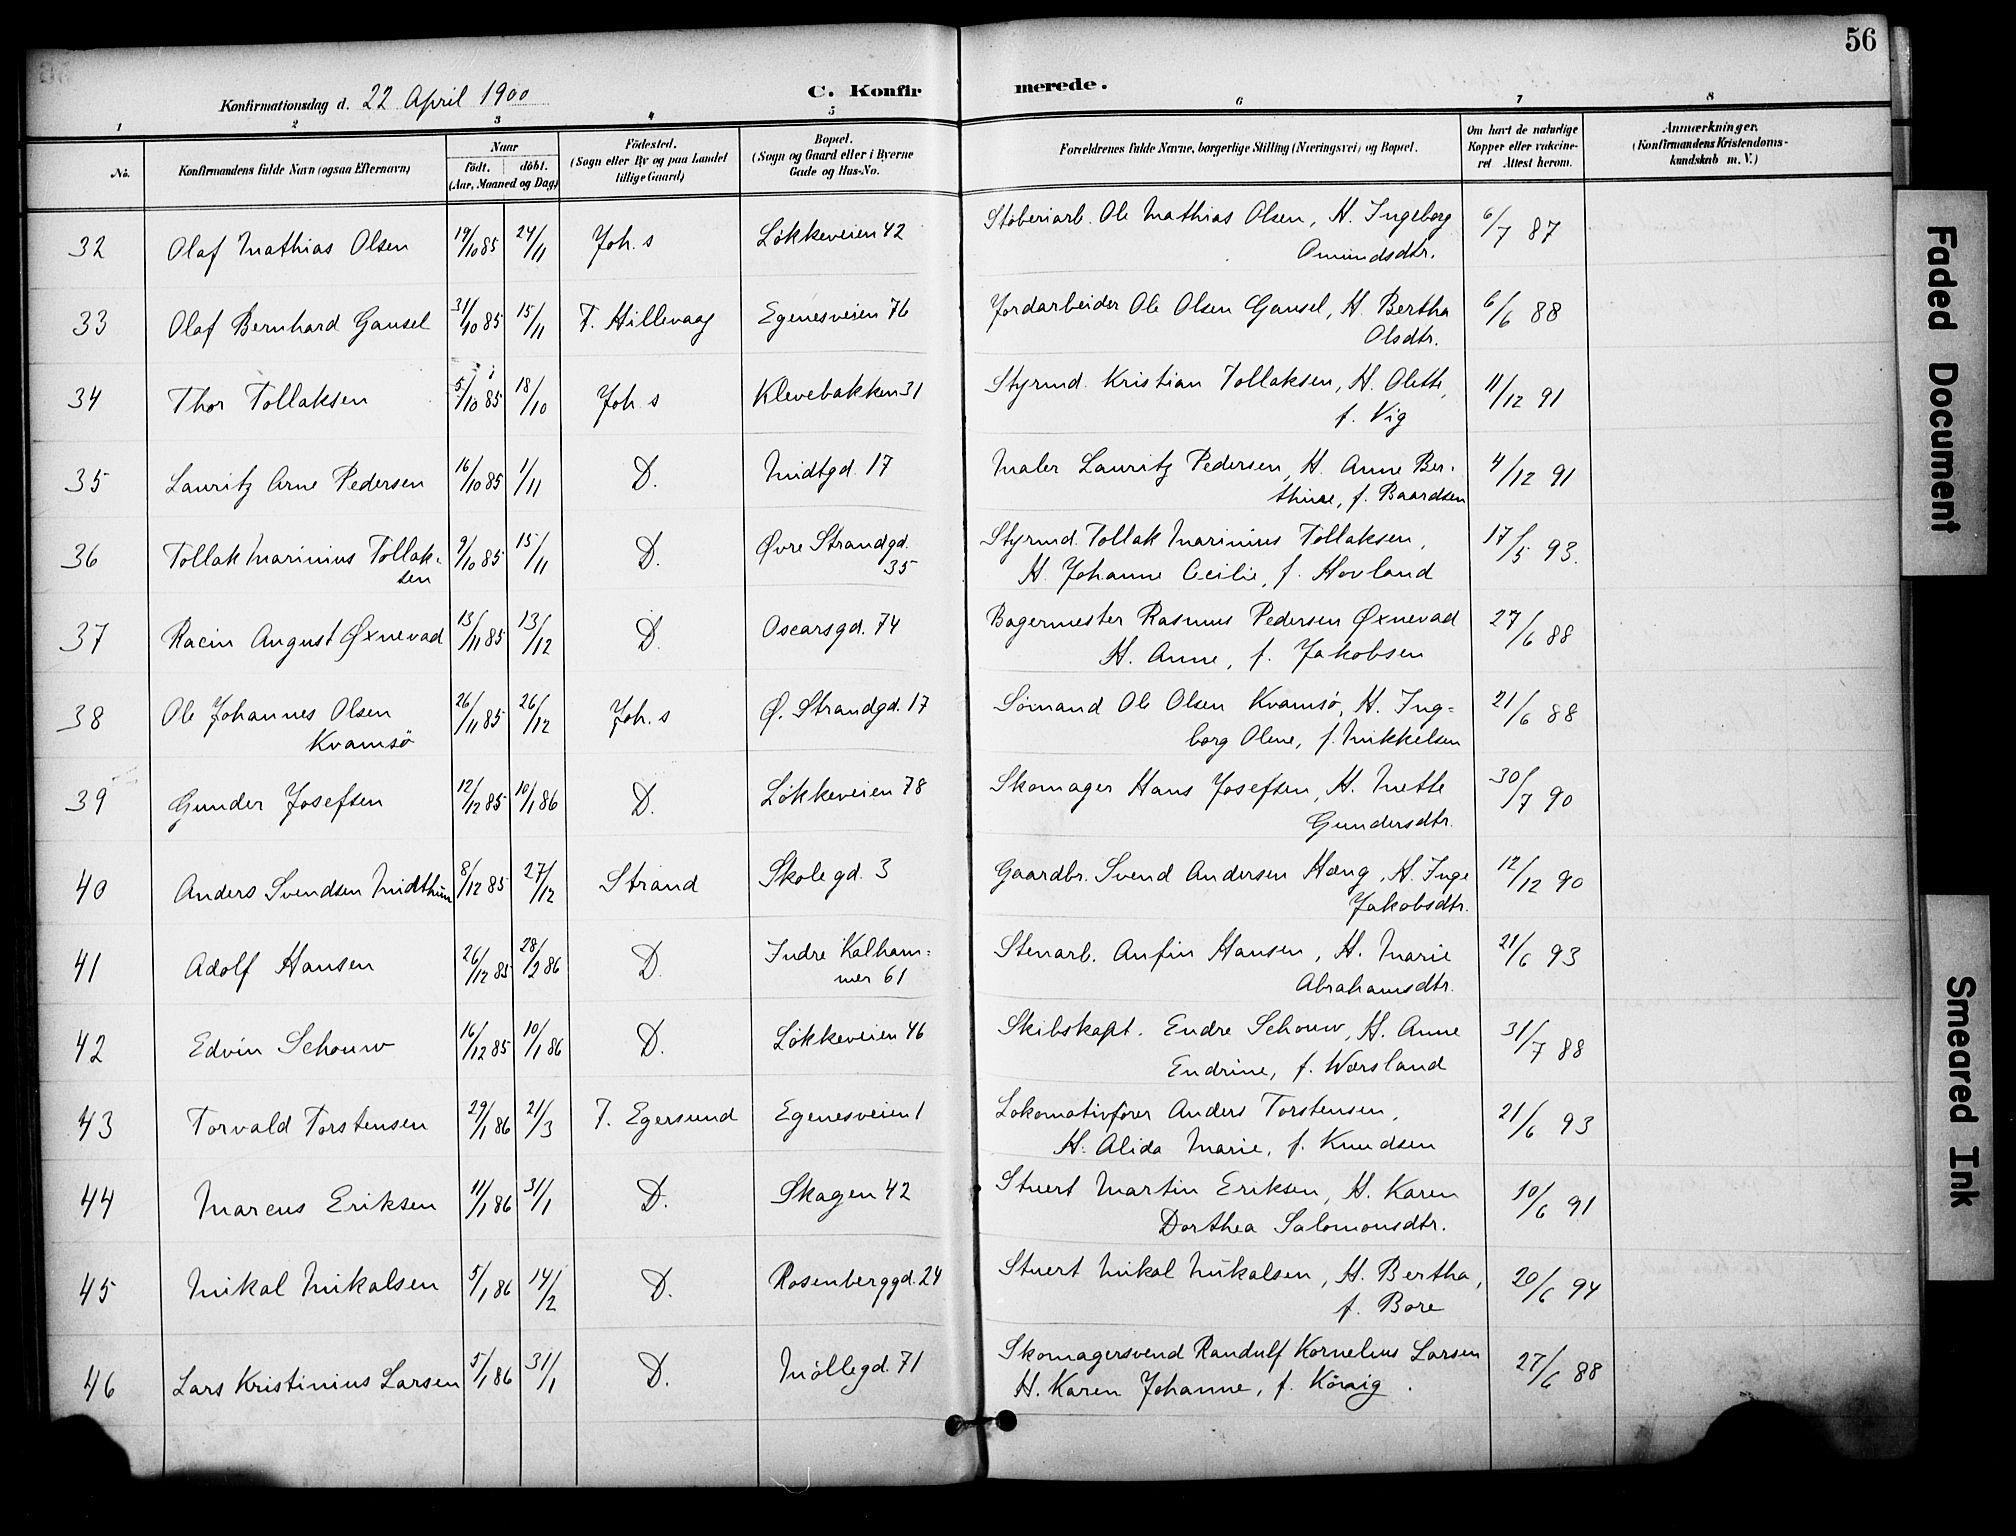 56
Konfirmationsdag d. 22 April 1900
C. Konfirmerede.
1 2 3 4 5 6 7 8
No.
Konfirmandens fulde Navn (ogsaa Efternavn)
Naar
födt. döbt.
(Aar, Maaned og Dag)
Födested.
(Sogn eller By og paa Landet
tillige Gaard)
Bopæl.
(Sogn og Gaard eller i Byerne
Gade og Hus-No.
Forældrenes fulde Navne, borgerlige Stilling (Næringsvei) og Bopæl.
Om havt de naturlige
Kopper eller vakcine-
ret. Attest herom.
Anmærkninger.
(Konfirmandens Kristendoms-
kundskab m. V.)
32 Olaf Mathias Olsen 19/10 85 24/11 Joh. s Løkkeveien 42 Støberiarb. Ole Mathias Olsen, H. Ingeborg 6/7 87
Omundsdtr.
33 Olaf Bernhard Gausel 31/10 85 15/11 F. Hillevaag Egenesveien 76 Jordarbeider Ole Olsen Gausel, H. Bertha 6/6 88
Olsdtr.
34 Thor Tollaksen 5/10 85 18/10 Joh. s Klevebakken 31 Styrmd. Kristian Tollaksen, H. Olette, 11/12 91
f. Vig
35 Lauritz Arne Pedersen 16/10 85 1/11 D. Midtgd. 17 Maler Lauritz Pedersen, H. Anne Ber- 4/12 91
thine, f. Baardsen
36 Tollak Marinius Tollak- 9/10 85 15/11 D. Øvre Strandgd. Styrmd. Tollak Marinius Tollaksen, 17/5 93.
sen 35 H. Johanne Cecilie, f. Hovland
37 Racin August Øxnevad 13/11 85 13/12 D. Oscarsgd. 74 Bagermester Rasmus Pedersen Øxnevad 27/6 88
H. Anne, f. Jakobsen
38 Ole Johannes Olsen 26/11 85 26/12 Joh. s Ø. Strandgd. 17 Sømand Ole Olsen Kvamsö, H. Ing- 21/6 88
Kvamsö borg Oline, f. Mikkelsen
39 Gunder Josefsen 12/12 85 10/1 86 D. Løkkeveien 78 Skomager Hans Josefsen, H. Mette 30/7 90
Gundersdtr.
40 Anders Svendsen Midthun 8/12 85 27/12 Strand Skolegd. 3 Gaardbr. Svend Andersen Haug, H. Inge 12/12 90
Jakobsdtr.
41 Adolf Hansen 26/12 85 28/2 86 D. Indre Kalham- Stenarb. Anfin Hansen, H. Marie 21/6 93
mer 61 Abrahamsdtr.
42 Edvin Schouw 16/12 85 10/1 86 D. Løkkeveien 46 Skibskapt. Endre Schouw, H. Anne 31/7 88
Endrine, f. Wærsland
43 Torvald Torstensen 29/1 86 21/3 F. Egersund Egenesveien 1 Lokomotivfører Anders Torstensen, 21/6 93
H. Alida Marie, f. Knudsen
44 Marcus Eriksen 11/1 86 31/1 D. Skagen 42 Stuert Martin Eriksen, H. Karen 10/6 91
Dorthea Salomonsdtr.
45 Mikal Mikalsen 5/1 86 14/2 D. Rosenberggd. 24 Stuert Mikal Mikalsen, H. Bertha, 20/6 94
f. Bore
46 Lars Kristinius Larsen 5/1 86 31/1 D. Møllegd. 71 Skomagersvend Randulf Kornelius Larsen 27/6 88
H. Karen Johanne, f.
Faded Document
Smeared Ink